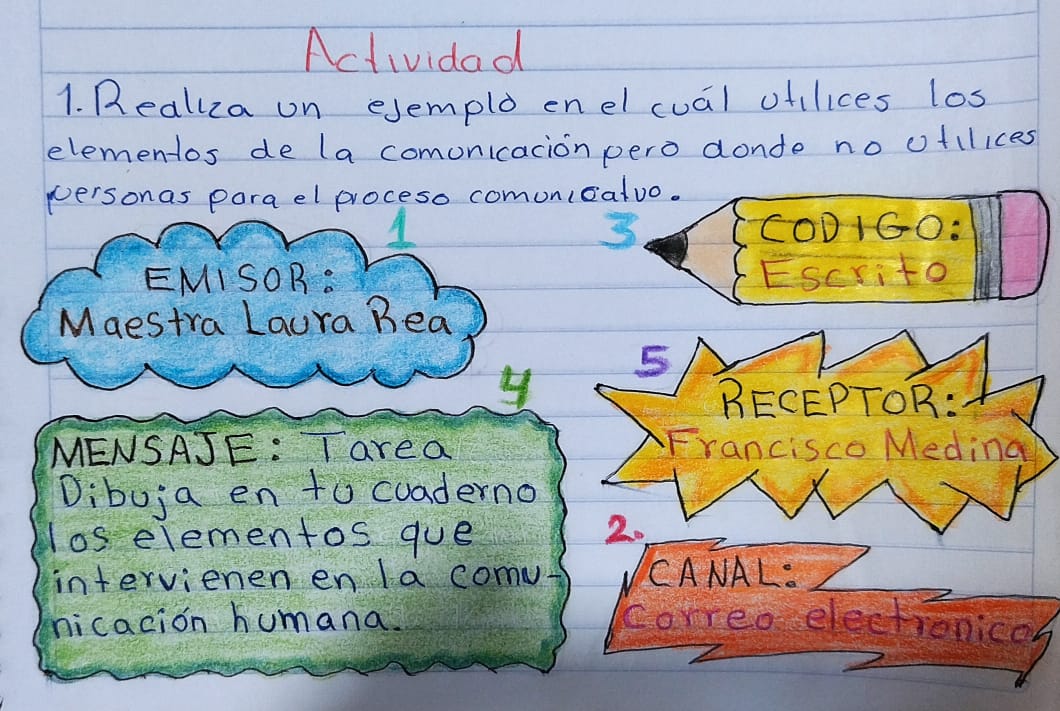 Actividad
1. Realiza un ejemplo en el cuál utilices los
elementos de la comunicación pero donde no utilices
personas para el proceso comunicatvo.
1
EMISOR:
Maestra Laura Rea
3
CODIGO:
Escrito
5
RECEPTOR:
Francisco Medina
4
MENSAJE: Tarea
Dibuja en tu cuaderno
los elementos que
intervienen en la comu-
nicación humana.
2.
CANAL:
Correo electronico